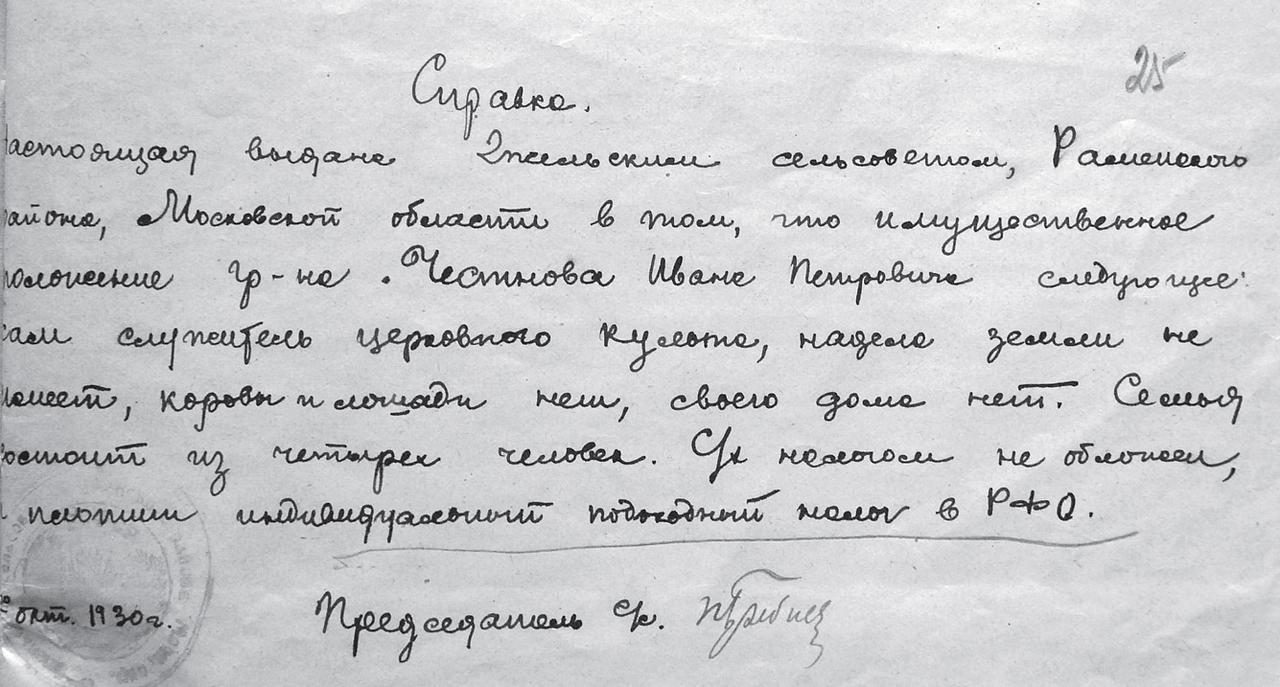 25
Справка.
настоящая выдана Гжельским сельсоветом, Раменского
района, Московской области в том, что имущественное
положение гр-на Честнова Ивана Петровича следующее:
сам служитель церковного культа, надела земли не
имеет, коровы и лошади нет, своего дома нет. Семья
состоит из четырех человек. С/х налогом не обложен,
платит индивидуальный подоходный налог в РФО.
окт. 1930 г.
Председатель С/с.